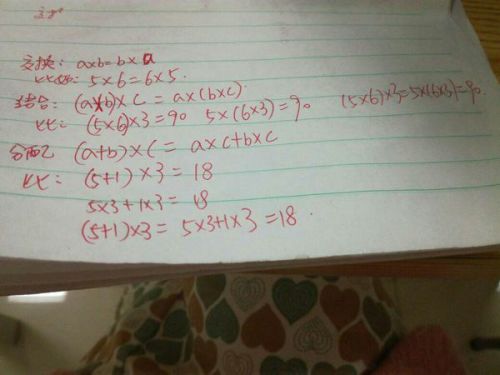 交换：a×b=b×a
比如：5×6=6×5.
结合：(a×b)×c=a×(b×c).
比：(5×6)×3=90 5×(6×3)=90 (5×6)×3=5×(6×3)=90.
分配 (a+b)×c=a×c+b×c
比：(5+1)×3=18
5×3+1×3=18
(5+1)×3=5×3+1×3=18.